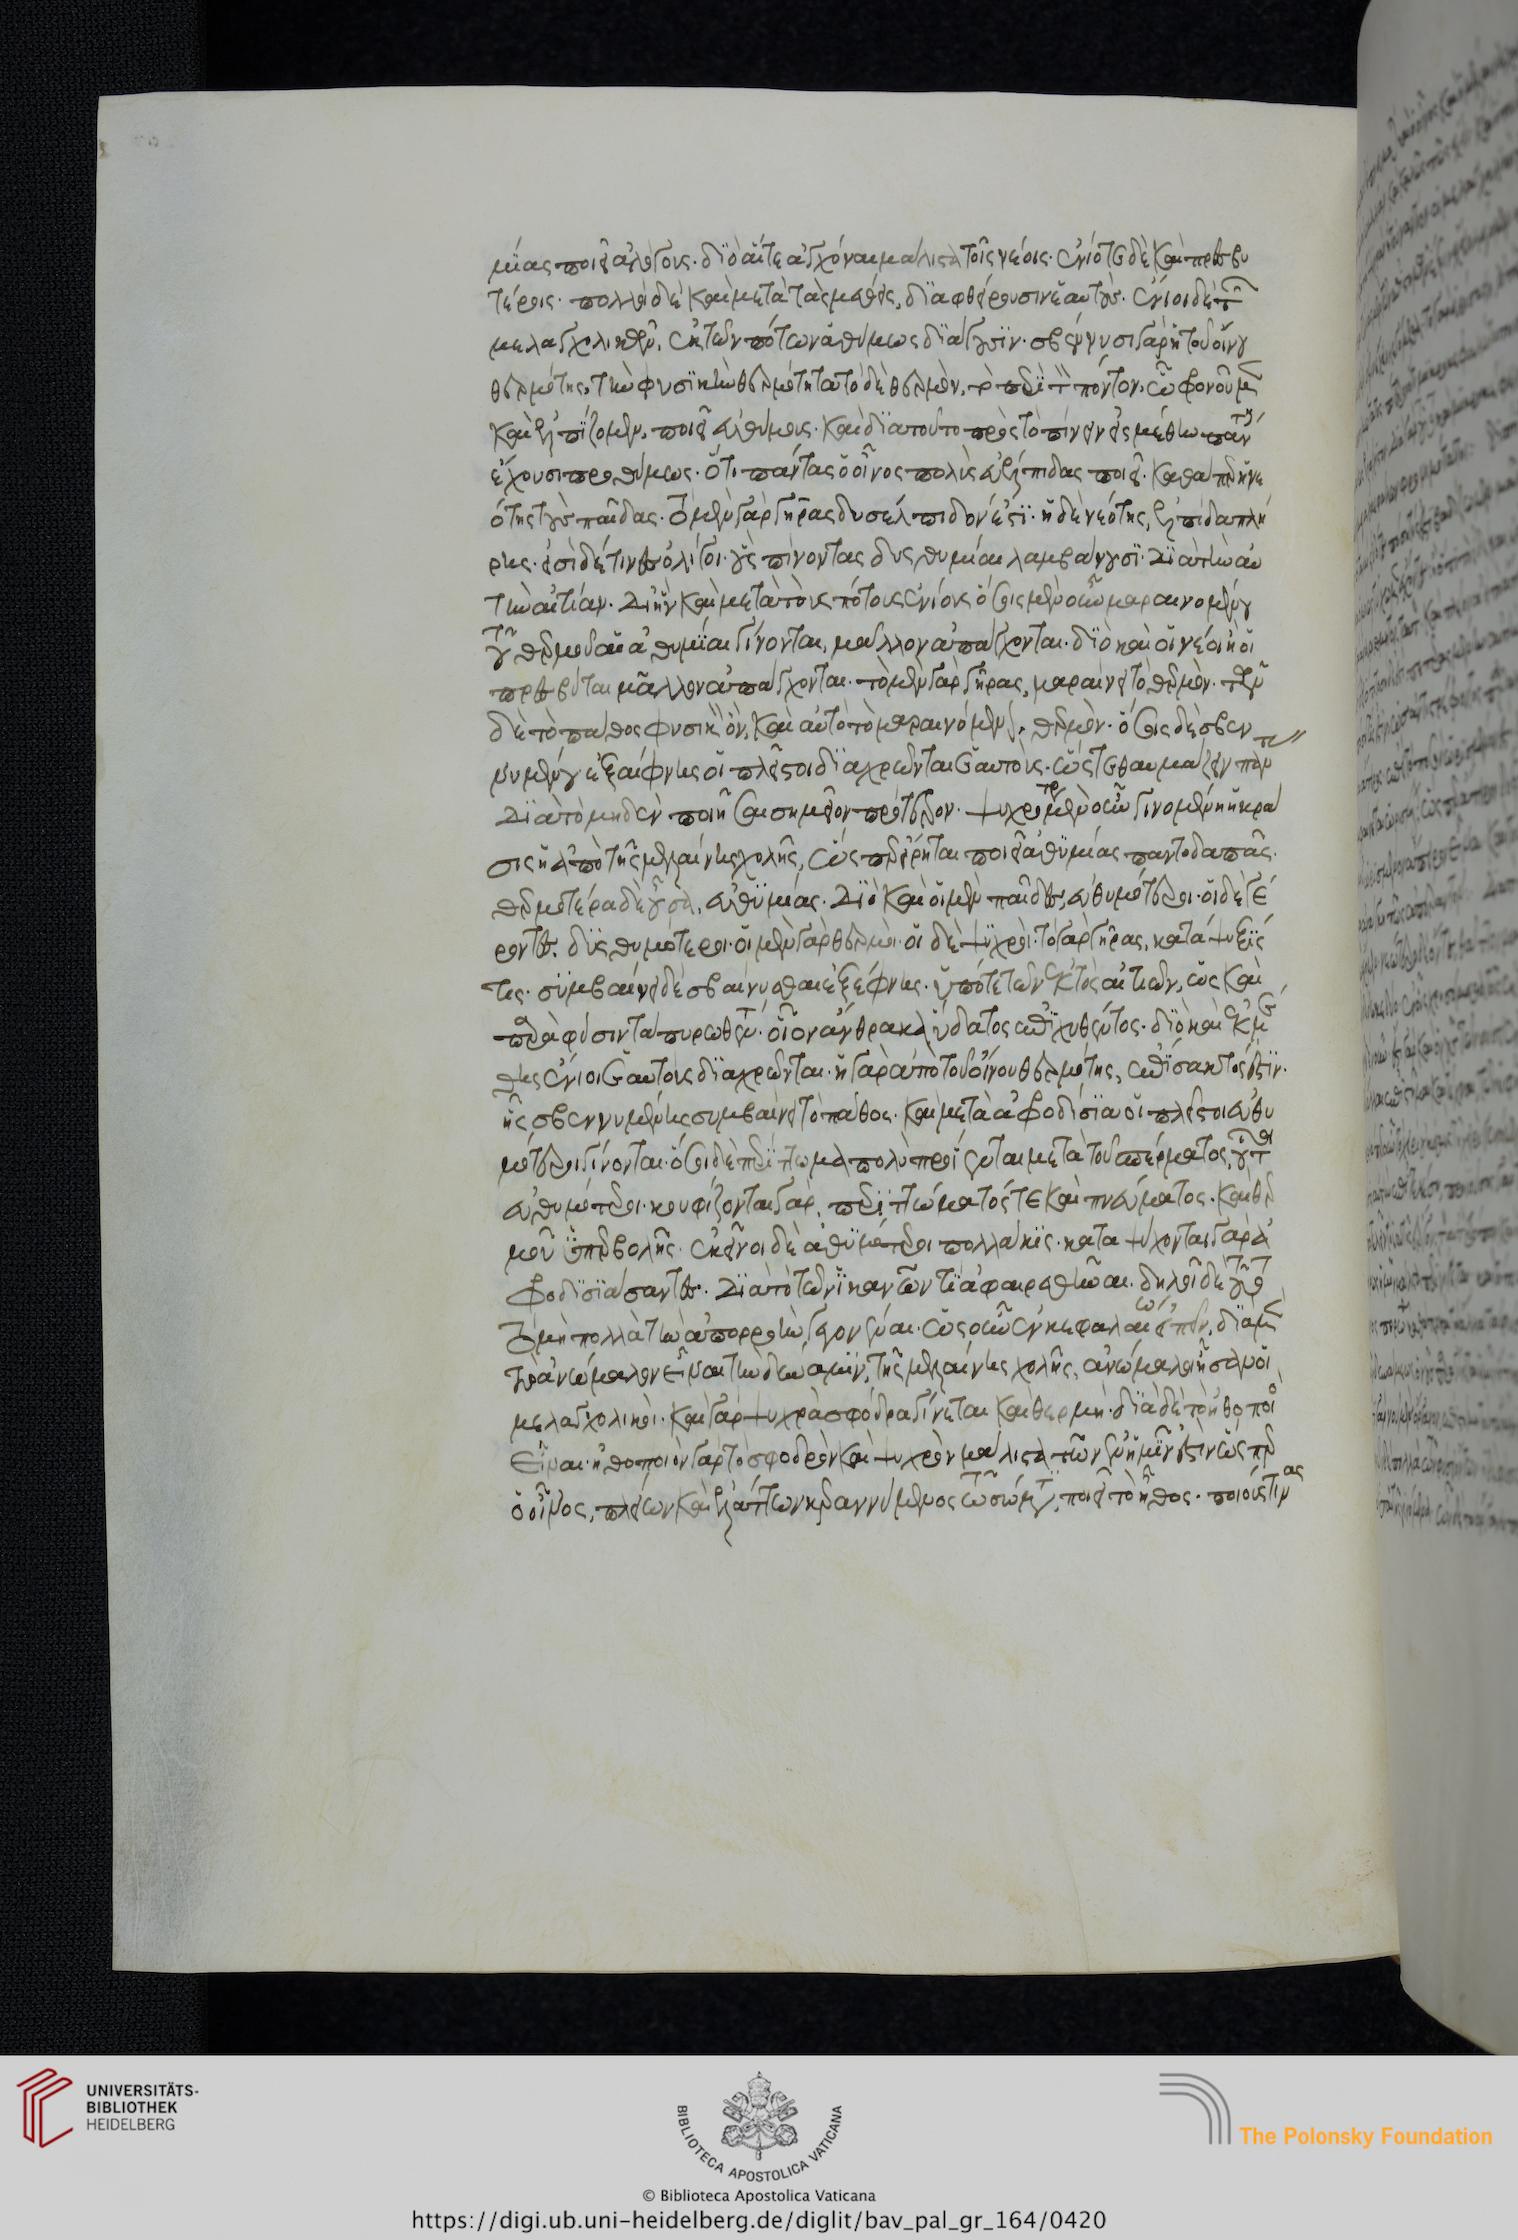 μίας ποιεῖ ἀλόγους· διὸ αἵ τε ἀγχόναι μάλιστα τοῖς νέοις· ἐνίοτε δὲ καὶ πρεσβυ
τέροις· πολλοὶ δὲ καὶ μετὰ τὰς μέθας, διαφθείρουσιν ἑαυτούς· ἔνιοι δὲ τῶν
μελαγχολικῶν, ἐκ τῶν πότων ἀθύμως διάγουσιν· σβέννυσι γὰρ ἡ τοῦ οἴνου
θερμότης, τὴν φυσικὴν θερμότητα τὸ δὲ θερμὸν, τὸ περὶ τὸν τόπον, ὧ φρονοῦμεν
καὶ ἐλπίζομεν, ποιεῖ εὐθύμους· καὶ διατοῦτο πρὸς τὸ πίνειν εἰς μέθην πάντες
ἔχουσι προθύμως· ὅτι πάντας ὁ οἶνος πολὺς εὐέλπιδας ποιεῖ· καθάπερ ἡ νε
ότης τοὺς παῖδας· τὸ μὲν γὰρ γῆρας δυσέλπιδον ἐστὶ· ἡ δὲ νεότης, ἐλπίδα πλή
ρης· εἰσὶ δέ τινες ὀλίγοι· οὓς πίνοντας δυσθυμίαι λαμβάνουσι· διὰ τὴν αὐ
τὴν αἰτίαν· δι ἣν καὶ μετὰ τοὺς πότους ἐνίους ὅσοις μὲν οὖν μαραινομένου
τοῦ θερμοῦ αἱ ἀθυμίαι γίνονται, μάλλον ἀπάγχονται· διὸ καὶ οἱ νέοι ἢ οἱ
πρεσβύται μᾶλλον ἀπάγχονται· τὸ μὲν γὰρ γῆρας, μαραίνει τὸ θερμόν· τῶν
δὲ τὸ πάθος φυσικὸν ὂν, καὶ αὐτὸ τὸ μαραινόμενον θερμόν· ὅσοις δὲ σβεν
νυμένου ἐξαίφνης οἱ πλεῖστοι διαχρῶνται ἑαυτοὺς· ὥστε θαυμάζειν πάν
διὰ τὸ μηδὲν ποιῆσαι σημεῖον πρότερον· ψυχροτέρα μὲν οὖν γινομένη ἡ κρᾶ
σις ἡ ἀπὸ τῆς μελαίνης χολῆς, ὥσπερ εἴρηται ποιεῖ ἀθυμίας παντοδαπάς·
θερμοτέρα δὲ οὖσα, εὐθυμίας· διὸ καὶ οἱ μὲν παῖδες, εὐθυμότεροι· οἱ δὲ γέ
ροντες, δυσθυμότεροι· οἱ μὲν γὰρ θερμοὶ· οἱ δὲ ψυχροὶ· τὸ γὰρ γῆρας, κατάψυξίς
τις· συμβαίνει δὲ σβαίνυσθαι ἐξέφνης· ὑπό τε τῶν ἐκτὸς αἰτιῶν, ὡς καὶ
παρὰ φύσιν τὰ πυρωθέντα· οἷον ἄνθρακα ὕδατος ἐπιχυθέντος· διὸ καὶ ἐκ μέ
θης ἔνιοι ἑαυτοὺς διαχρῶνται· ἡ γὰρ ἀπὸ τοῦ οἴνου θερμότης, ἐπίσακτός ἐστιν·
ἧς σβεννυμένης συμβαίνει τὸ πάθος· καὶ μετὰ ἀφροδίσια οἱ πλεῖστοι ἀθυ
μότεροι γίνονται· ὅσοι δὲ περίττωμα πολὺ προΐενται μετὰ τοῦ σπέρματος, οὗτοι
εὐθυμότεροι· κουφίζονται γὰρ, περιττώματός τε καὶ πνεύματος· καὶ θερ
μοῦ ὑπερβολῆς· ἐκεῖνοι δὲ ἀθυμότεροι πολλάκις· καταψύχονται γὰρ ἀ
φροδισιάσαντες· διὰ τὸ τῶν ἱκανῶν τι ἀφαιρεθῆναι· δηλοῖ δὲ τοῦτο
τὸ μὴ πολλὰ τὴν ἀπορροὴν γεγονέναι· ὡς οὖν ἐν κεφαλαίω εἰπεῖν, διὰ μὲν
τὸ ἀνώμαλον εἶναι τὴν δύναμιν, τῆς μελαίνης χολῆς, ἀνώμαλοί εἰσιν οἱ
μελαγχολικοὶ· καὶ γὰρ ψυχρὰ σφόδρα γίνεται καὶ θερμὴ· διὰ δὲ τὸ ἠθοποιὸς
εἶναι· ἠθοποιὸν γὰρ τὸ σφοδρὸν καὶ ψυχρὸν μάλιστα τῶν ἐν ἡμῖν ἐστὶν ὥσπερ
ὁ οἶνος, πλείων καὶ ἐλάττων κεραννύμενος τῷ σώματι, ποιεῖ τὸ ἦθος· ποιούς τινας
UNIVERSITÄTS-
BIBLIOTHEK
HEIDELBERG
BIBLIOTECA APOSTOLICA VATICANA
The Polonsky Foundation
© Biblioteca Apostolica Vaticana
https://digi.ub.uni-heidelberg.de/diglit/bav_pal_gr_164/0420